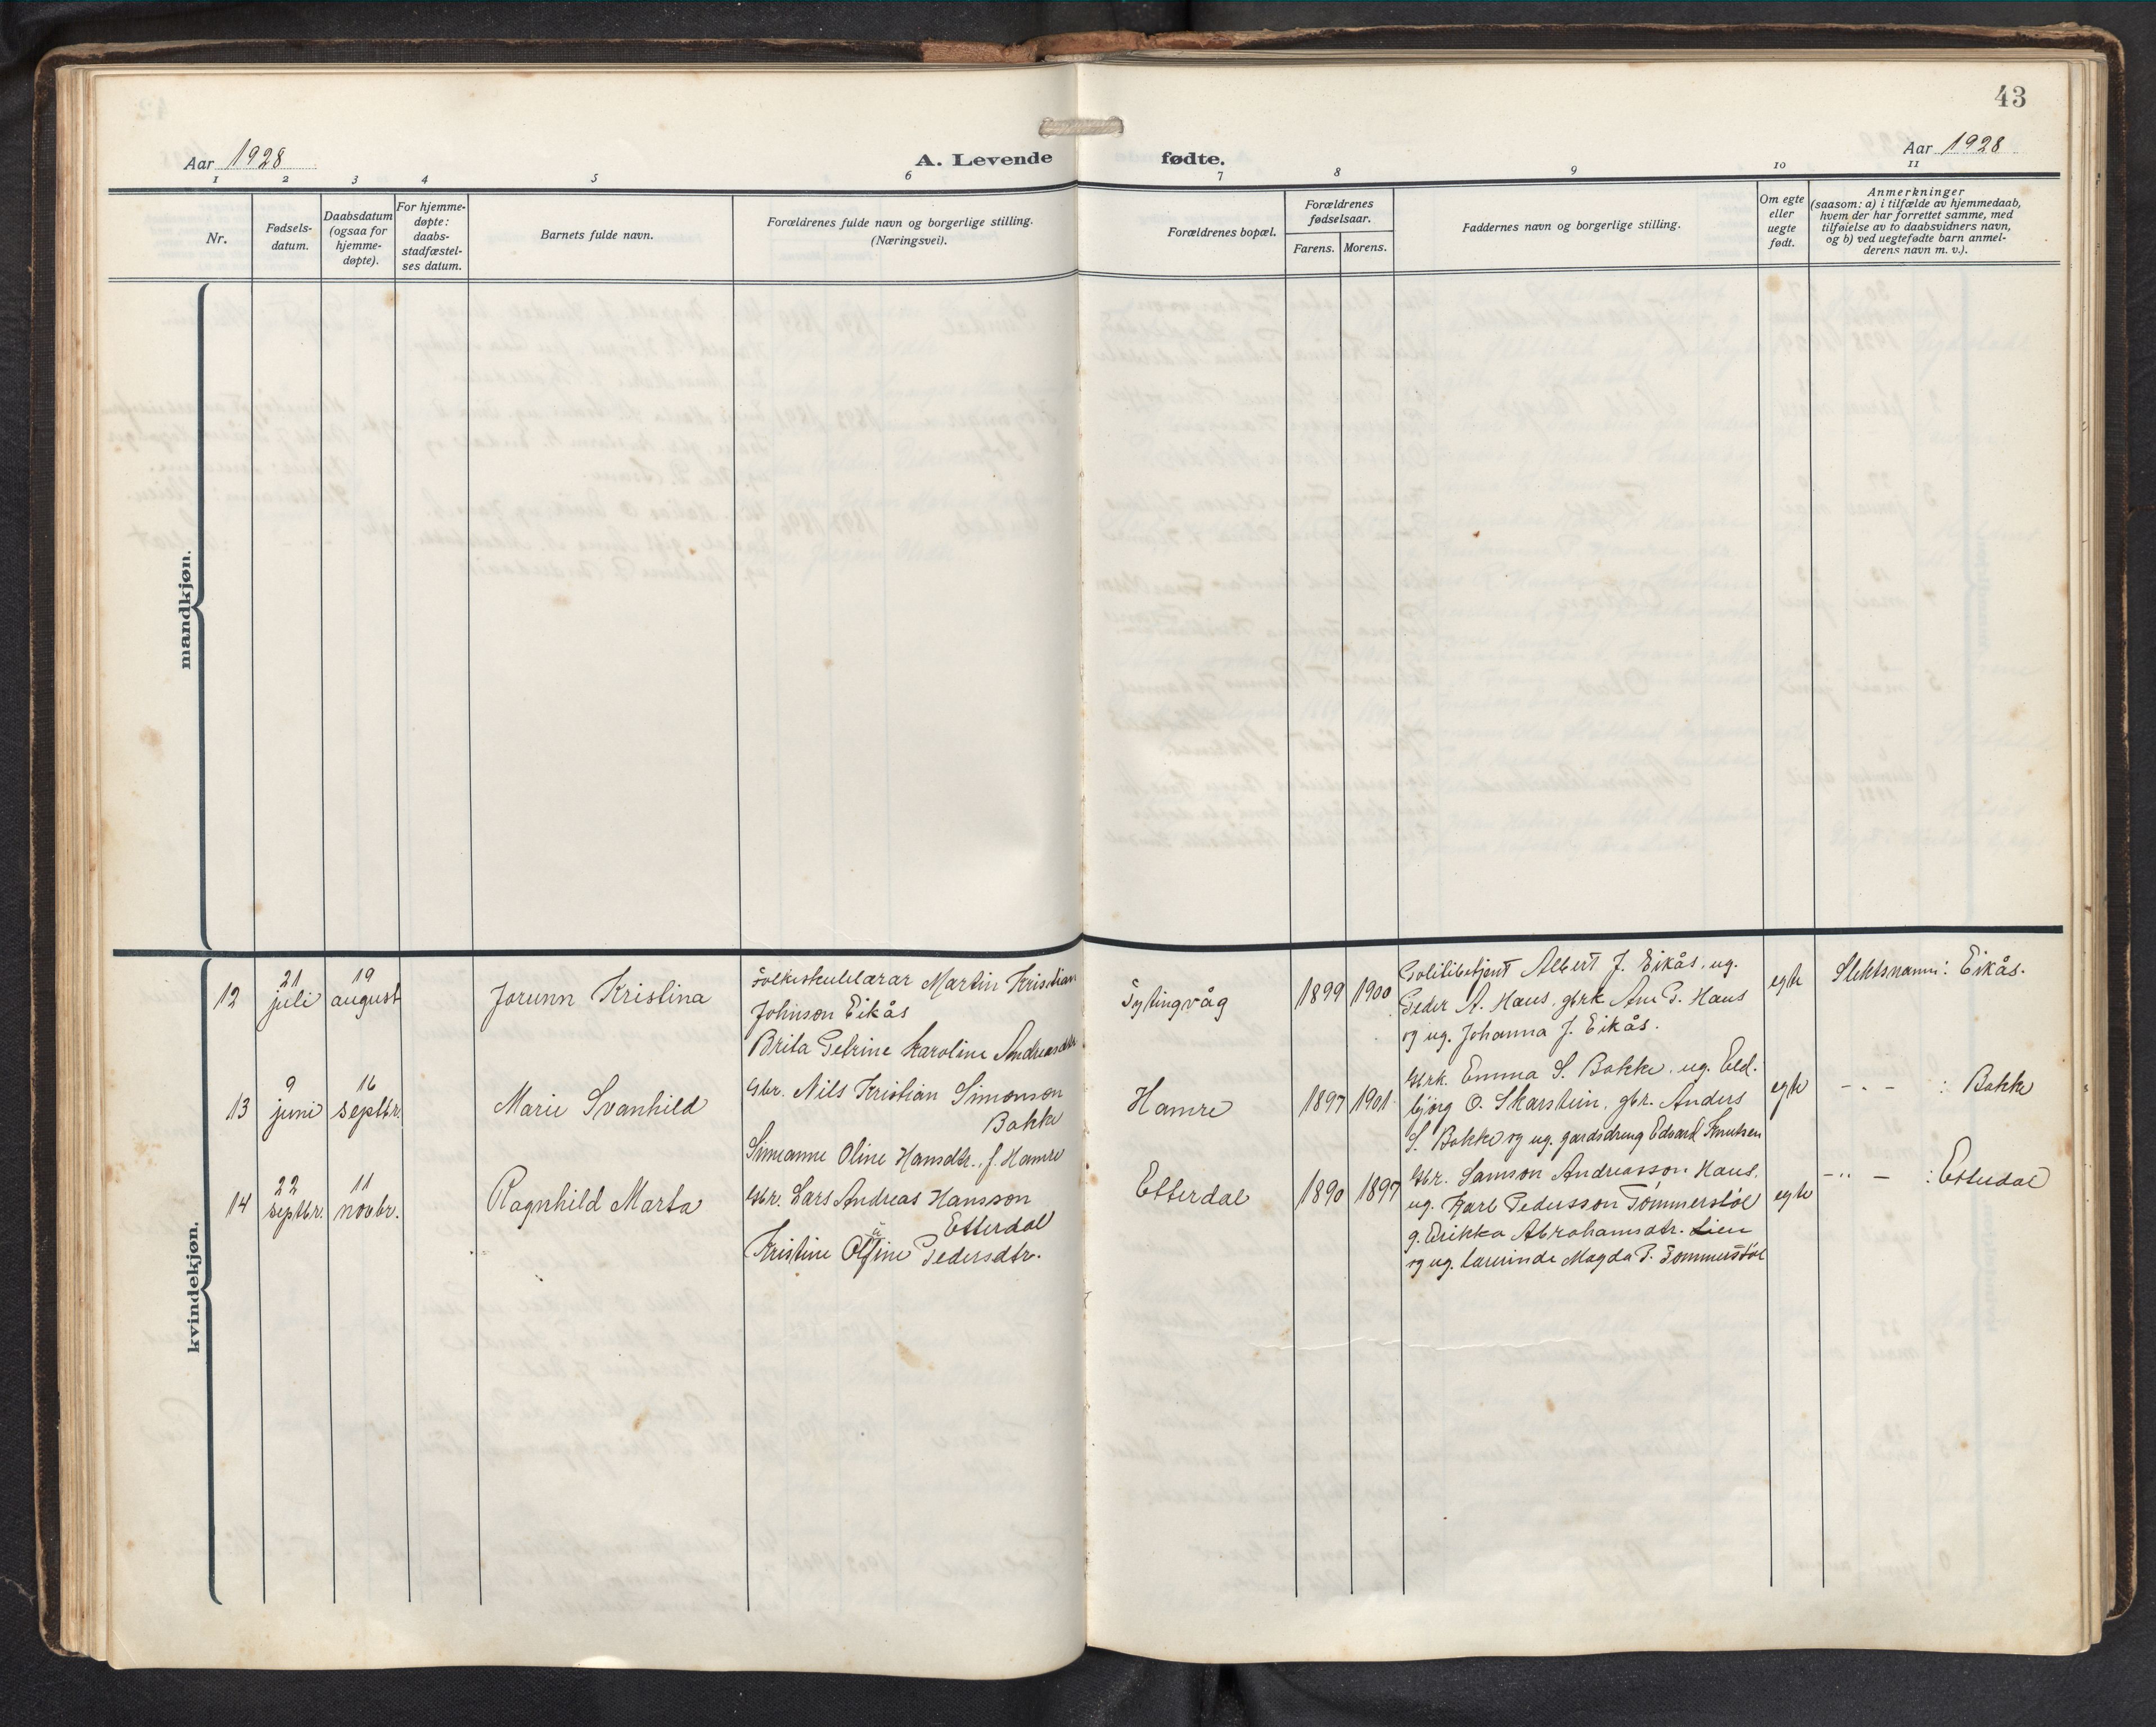 43
Aar 1928
A. Levende fødte.
Aar 1928
1 2 3 4 5 6 7 8 9 10 11
Nr.
Fødsels-
datum.
Daabsdatum
(ogsaa for
hjemme-
døpte).
For hjemme-
døpte:
daabs-
stadfæstel-
ses datum.
Barnets fulde navn.
Forældrenes fulde navn og borgerlige stilling.
(Næringsvei).
Forældrenes bopæl.
Forældrenes
fødselsaar.
Farens. Morens.
Faddernes navn og borgerlige stilling.
Om egte
eller
uegte
født.
Anmerkninger
(saasom: a) i tilfælde av hjemmedaab,
hvem der har forrettet samme, med
tilføielse av to daabsvidners navn,
og b) ved uegtefødte barn anmel-
derens navn m. v.).
mandkjøn.
kvindekjøn.
12
21
juli
19
august
Jorunn Kristina
Folkeskulelærar Martin Kristian
Johnson Eikås
Brita Petrine Karoline Andreasdtr
Sytingvåg
1899 1900
Politibetjent Albert J. Eikås, ug.
Peder A. Haus, gbrk Ane P. Haus
og ug. Johanna J. Eikås.
egte
Slektsnamn: Eikås.
13
9
juni
16
septbr.
Marie Svanhild
Gbr. Nils Kristian Simonson
Bakke
Simeanne Oline Hansdtr., f. Hamre
Hamre
1897 1901
Gbrk. Emma S. Bakke, ug. Eld-
bjørg O. Skarstein, gbr. Anders
S. Bakke og ug. gardsdreng Edvard Knutsen
egte
- " - : Bakke
14
22
septbr.
11
novbr.
Ragnhild Marta
Gbr. Lars Andreas Hansson
Etterdal
Kristine Pedersdtr.
Etterdal
1890 1897
Gbr. Samson Andreasson Haus,
ug. Karl Pedersson Tømmerstøl
g. Erikka Abrahamsdtr. Lien
og ug. lærerinde Magda P. Tømmerstøl
egte
- " - : Etterdal